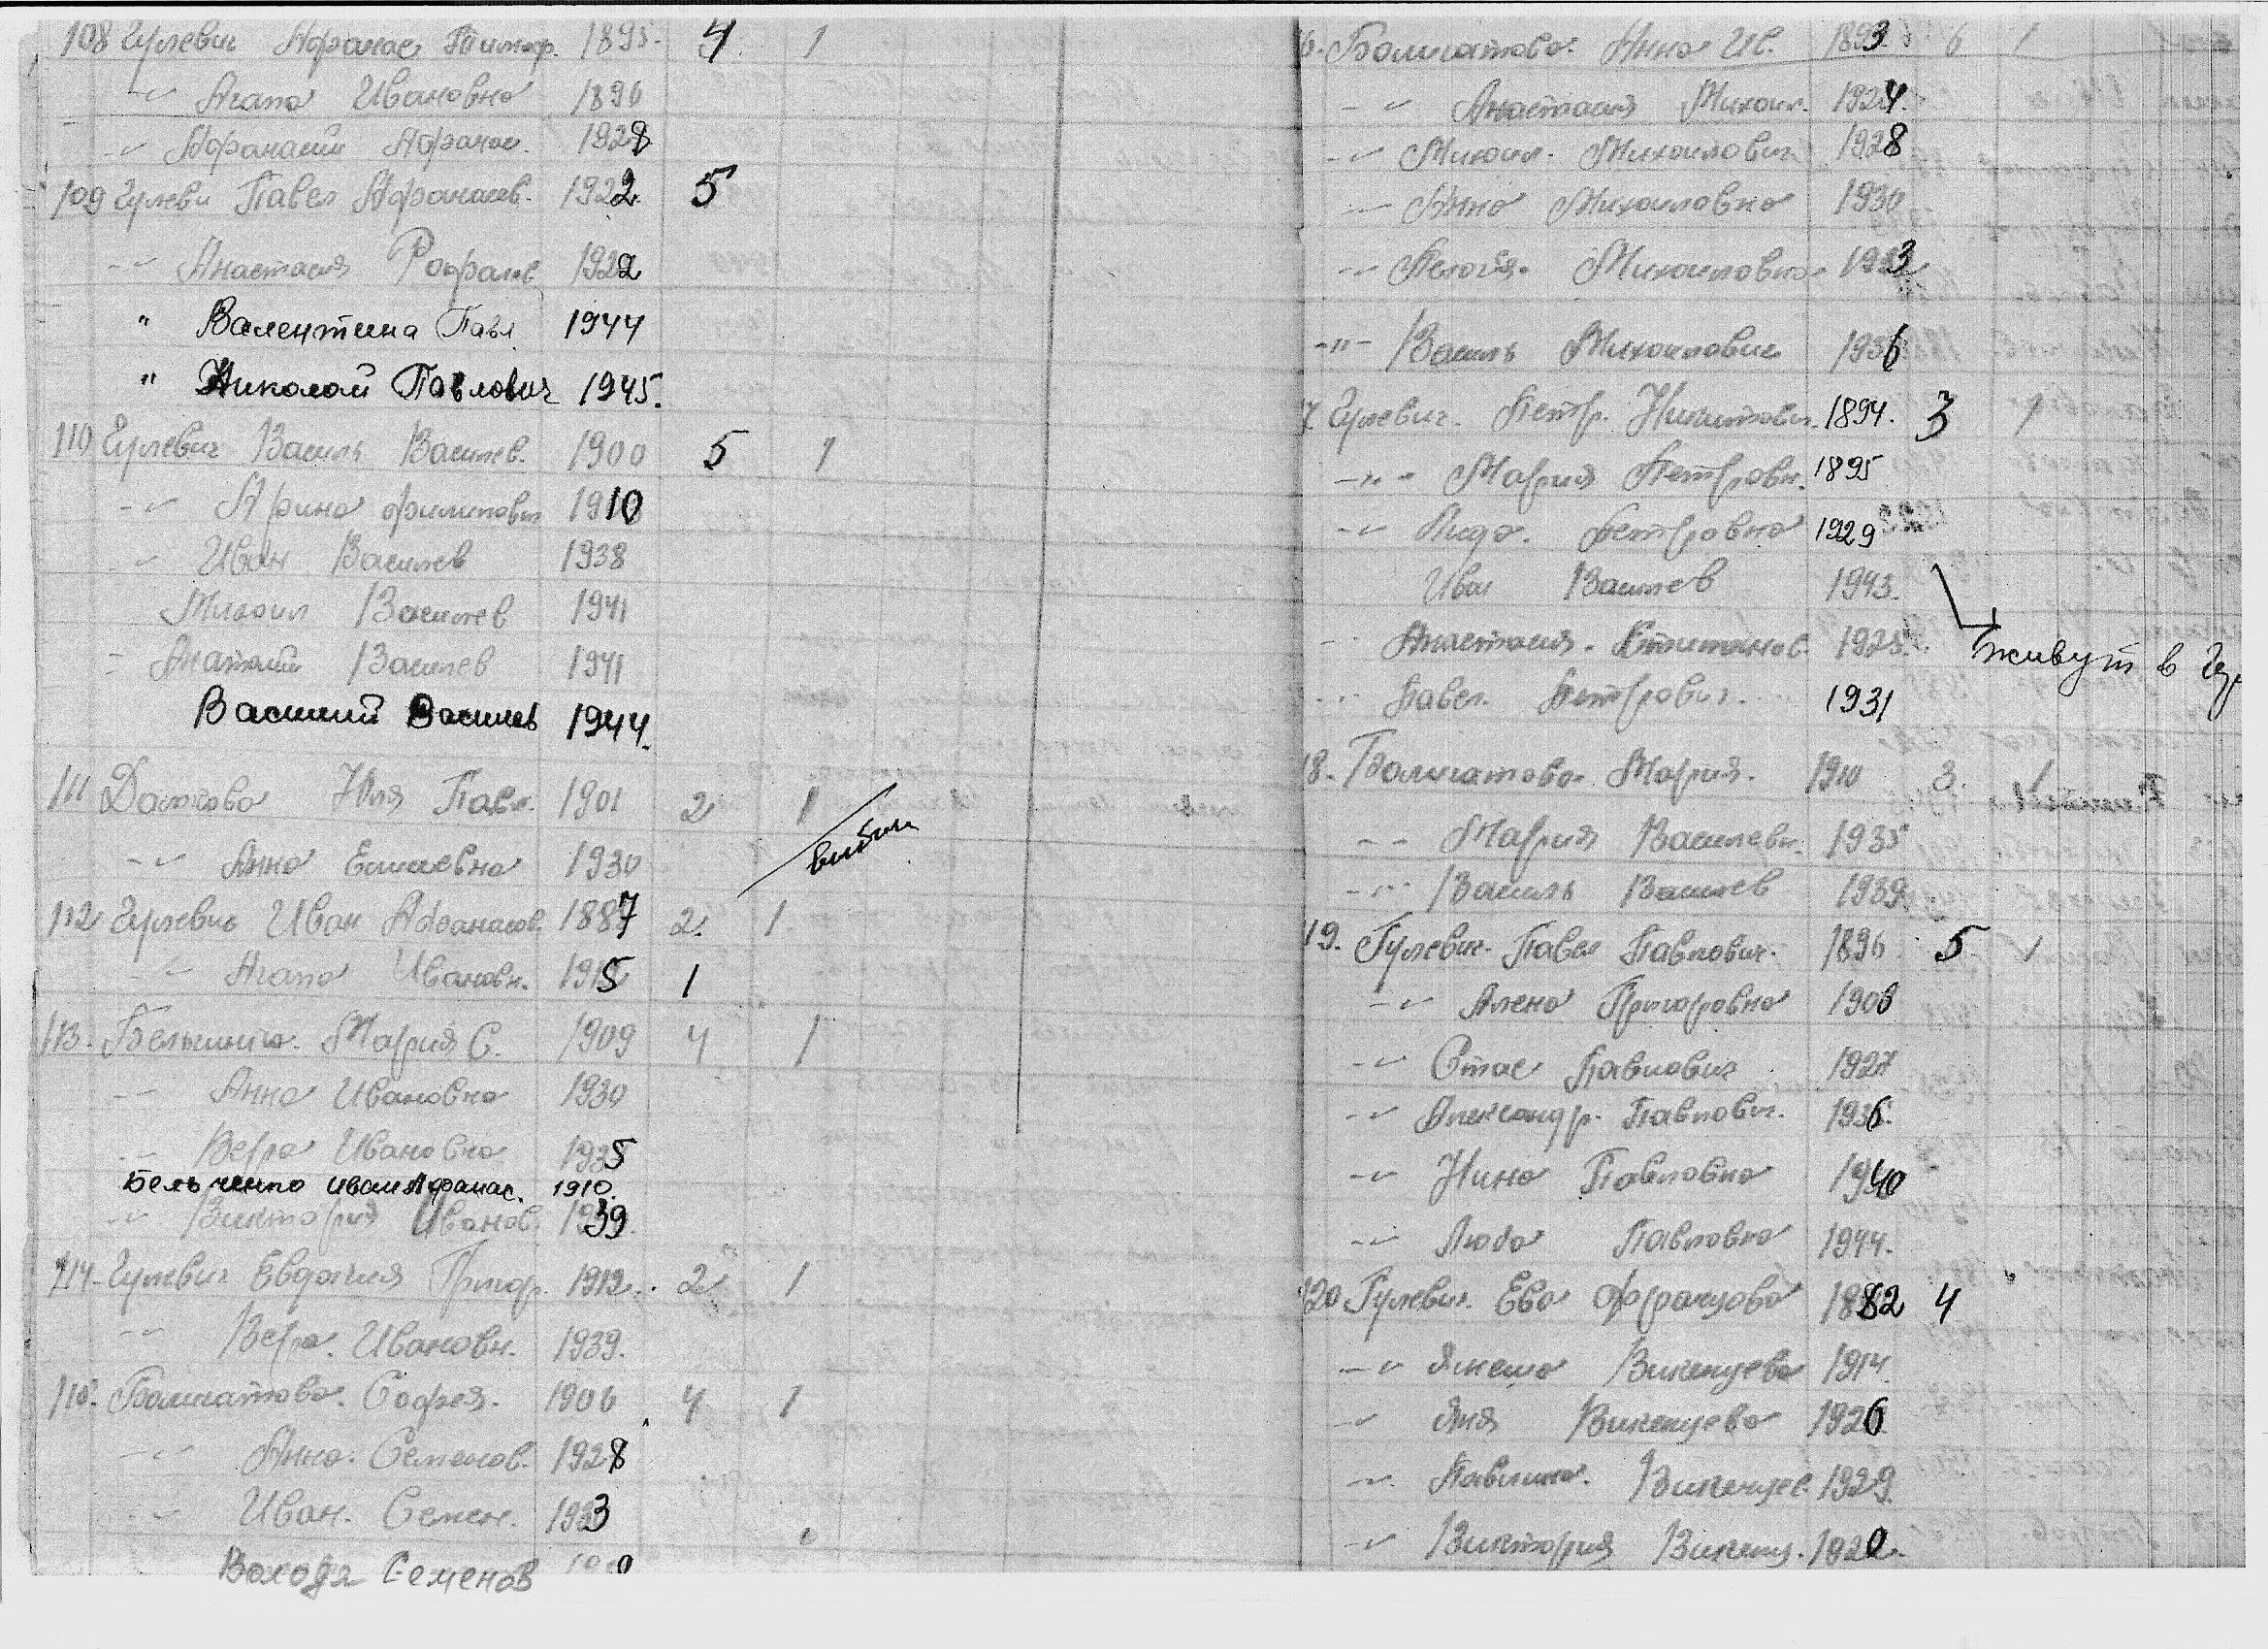 108 Гулевич Афанас Тимоф. 1895. 4 1
-〃 Агапа Ивановна 1896
-〃 Афанасий Афанас. 1928
109 Гулеви Павел Афанасев. 1922 5
-〃 Анастасия Рафалов 1922
〃 Валентина Павл 1944
〃 Николай Павлович 1945.
110 Гулевич Василь Василев. 1900 5 1
-〃 Арина Филипповн 1910
-〃 Иван Василев 1938
Михаил Василев 1941
- Анатолий Василев 1941
Василий Василев 1944.
111 Юля Павл. 1901 2 1
-〃 Анна 1930 выбыли
112 Гулевич Иван Афанасов. 1887 2. 1.
-〃 Агапа Ивановн. 1915 1
113. Мария С. 1909 4 1
-〃 Анна Ивановна 1930
-〃 Вера Ивановна 1935
Бельченко Иван Афанас. 1910.
-〃 Виктория Иванов. 1939.
114- Гулевич Евдокия Григор. 1912. 2 1
-〃 Вера. Ивановн. 1939.
115. Болматова. Софея. 1906 4 1
-〃 Анна. Семенов. 1928
-〃 Иван. Семен. 1933
Володя Семенов
6. Болматова. Анна Ив. 1893 6 1
-〃 Анастасия Михаил. 1924.
-〃 Михаил. Михаилович 1928
-〃 Анна Михаиловна 1930
-〃 Михаиловна 1933
-〃- Василь Михаилович 1936
7 Гулевич. Петр. Никитович. 1894. 3 1
-〃- Мария Петровн. 1895
-〃 Лида. Петровна 1929
Иван Василев 1943.
-- Анастасия. Степанов. 1925.
живут в
-- Павел. Петрович. 1931
18. Болматова. Мария. 1910 3. 1
-- Мария Василевн. 1935
-〃 Василь Василев 1939
19. Гулевич. Павел Павлович. 1896 5 1
-〃 Алена Григоровна 1900
-〃 Стас Павлович 1927
-〃 Александр. Павлович. 1936.
-〃 Нина Павловна 1940
-〃 Люба Павловна 1944.
120 Гулевич. Ева Францова 1882 4
-〃 Викенцева 1914.
〃 Яня Викенцева 1926
-〃 Павлина. Викенцев. 1929.
-〃 Виктория Викенц. 1920.